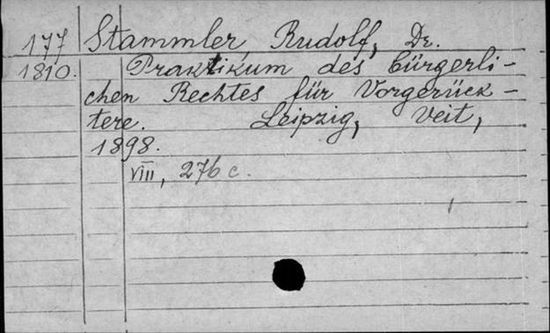 177 Stammler, Rudolf, Dr.
1810. Praktikum des bürgerli-
chen Rechtes für Vorgerück-
tere. Leipzig, Veit,
1898.
VIII, 276 c.